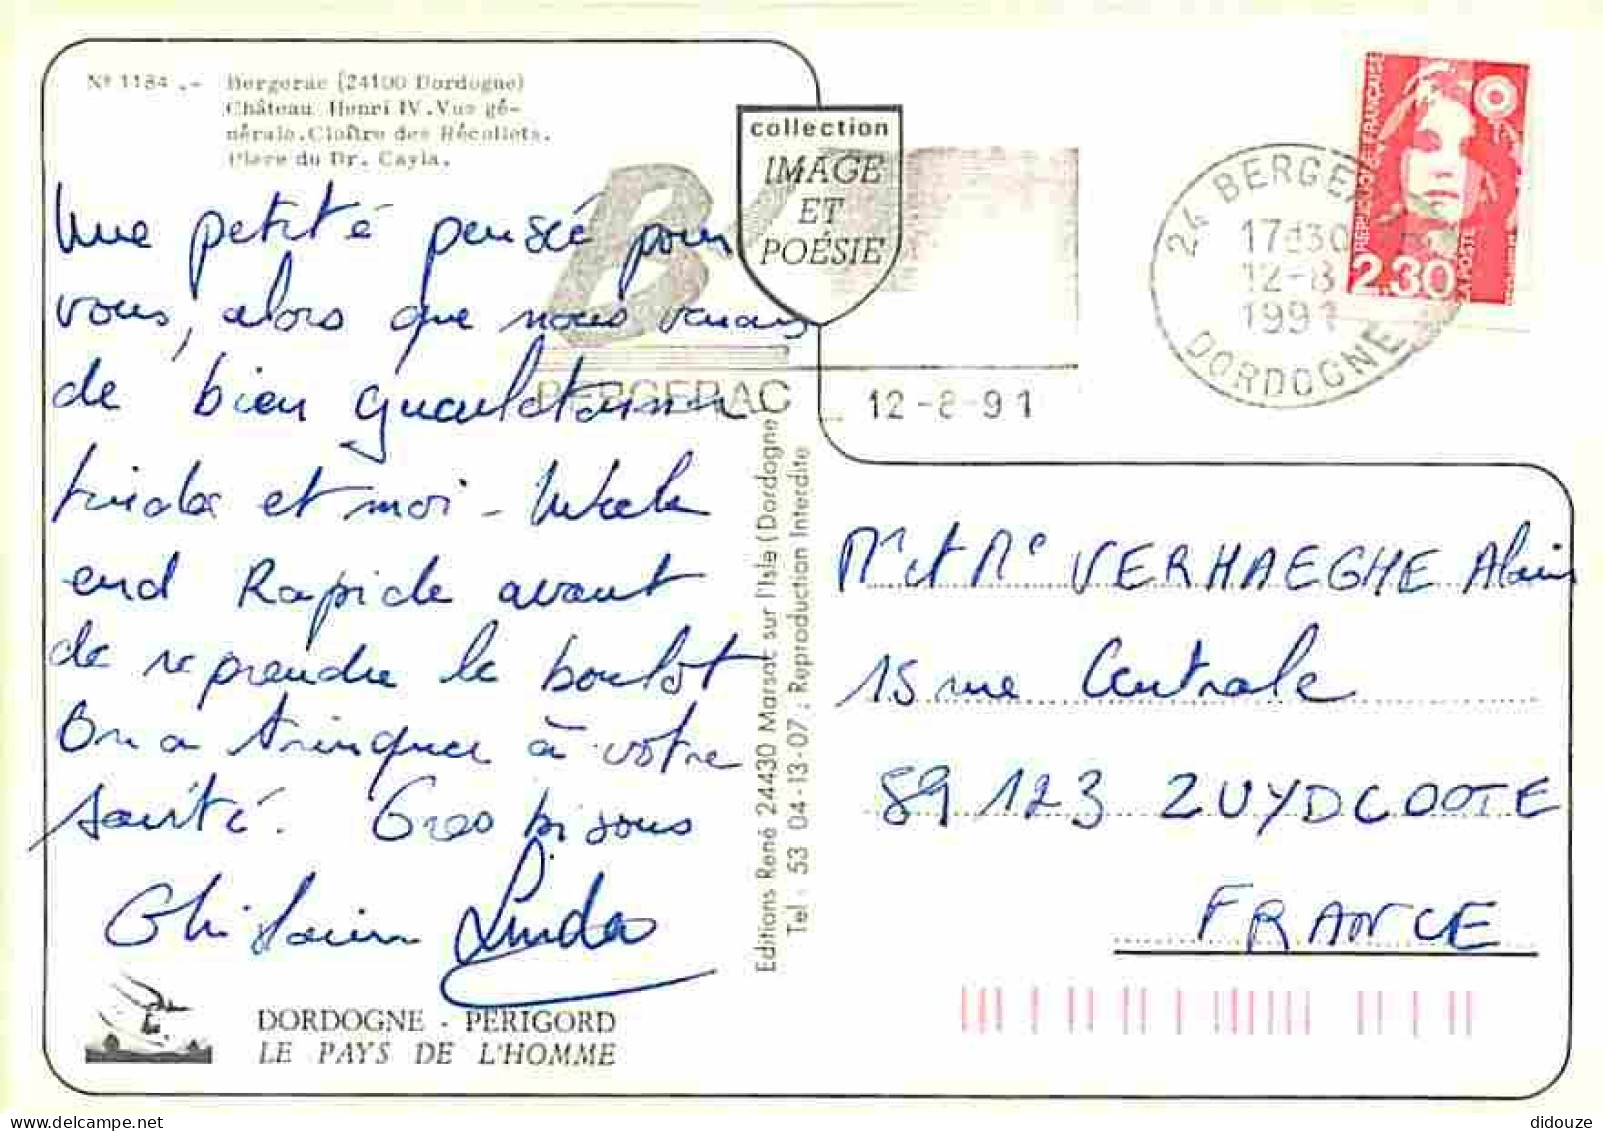 Nº 1184 .- Bergerac (24100 Dordogne)
Château Henri IV. Vue gé-
nérale. Cloître des Récollets.
Place du Dr. Cayla.
collection
IMAGE
ET
POÉSIE
24 BERGE
17H30
12-8
1991
DORDOGNE
RÉPUBLIQUE FRANÇAISE
2,30
LA POSTE
BERGERAC
12-8-91
Une petite pensée pour
vous, alors que nous venons
de bien
Linda et moi - Week
end Rapide avant
de reprendre le boulot
On a trinquer à votre
santé. Gros bisous
Ghislain Linda
Editions René 24430 Marsac sur l'Isle (Dordogne
Tel : 53 04-13-07 : Reproduction Interdite
Mr et Me VERHAEGHE Alain
15 rue Centrale
59 123 ZUYDCOOTE
FRANCE
DORDOGNE - PÉRIGORD
LE PAYS DE L'HOMME
didouze